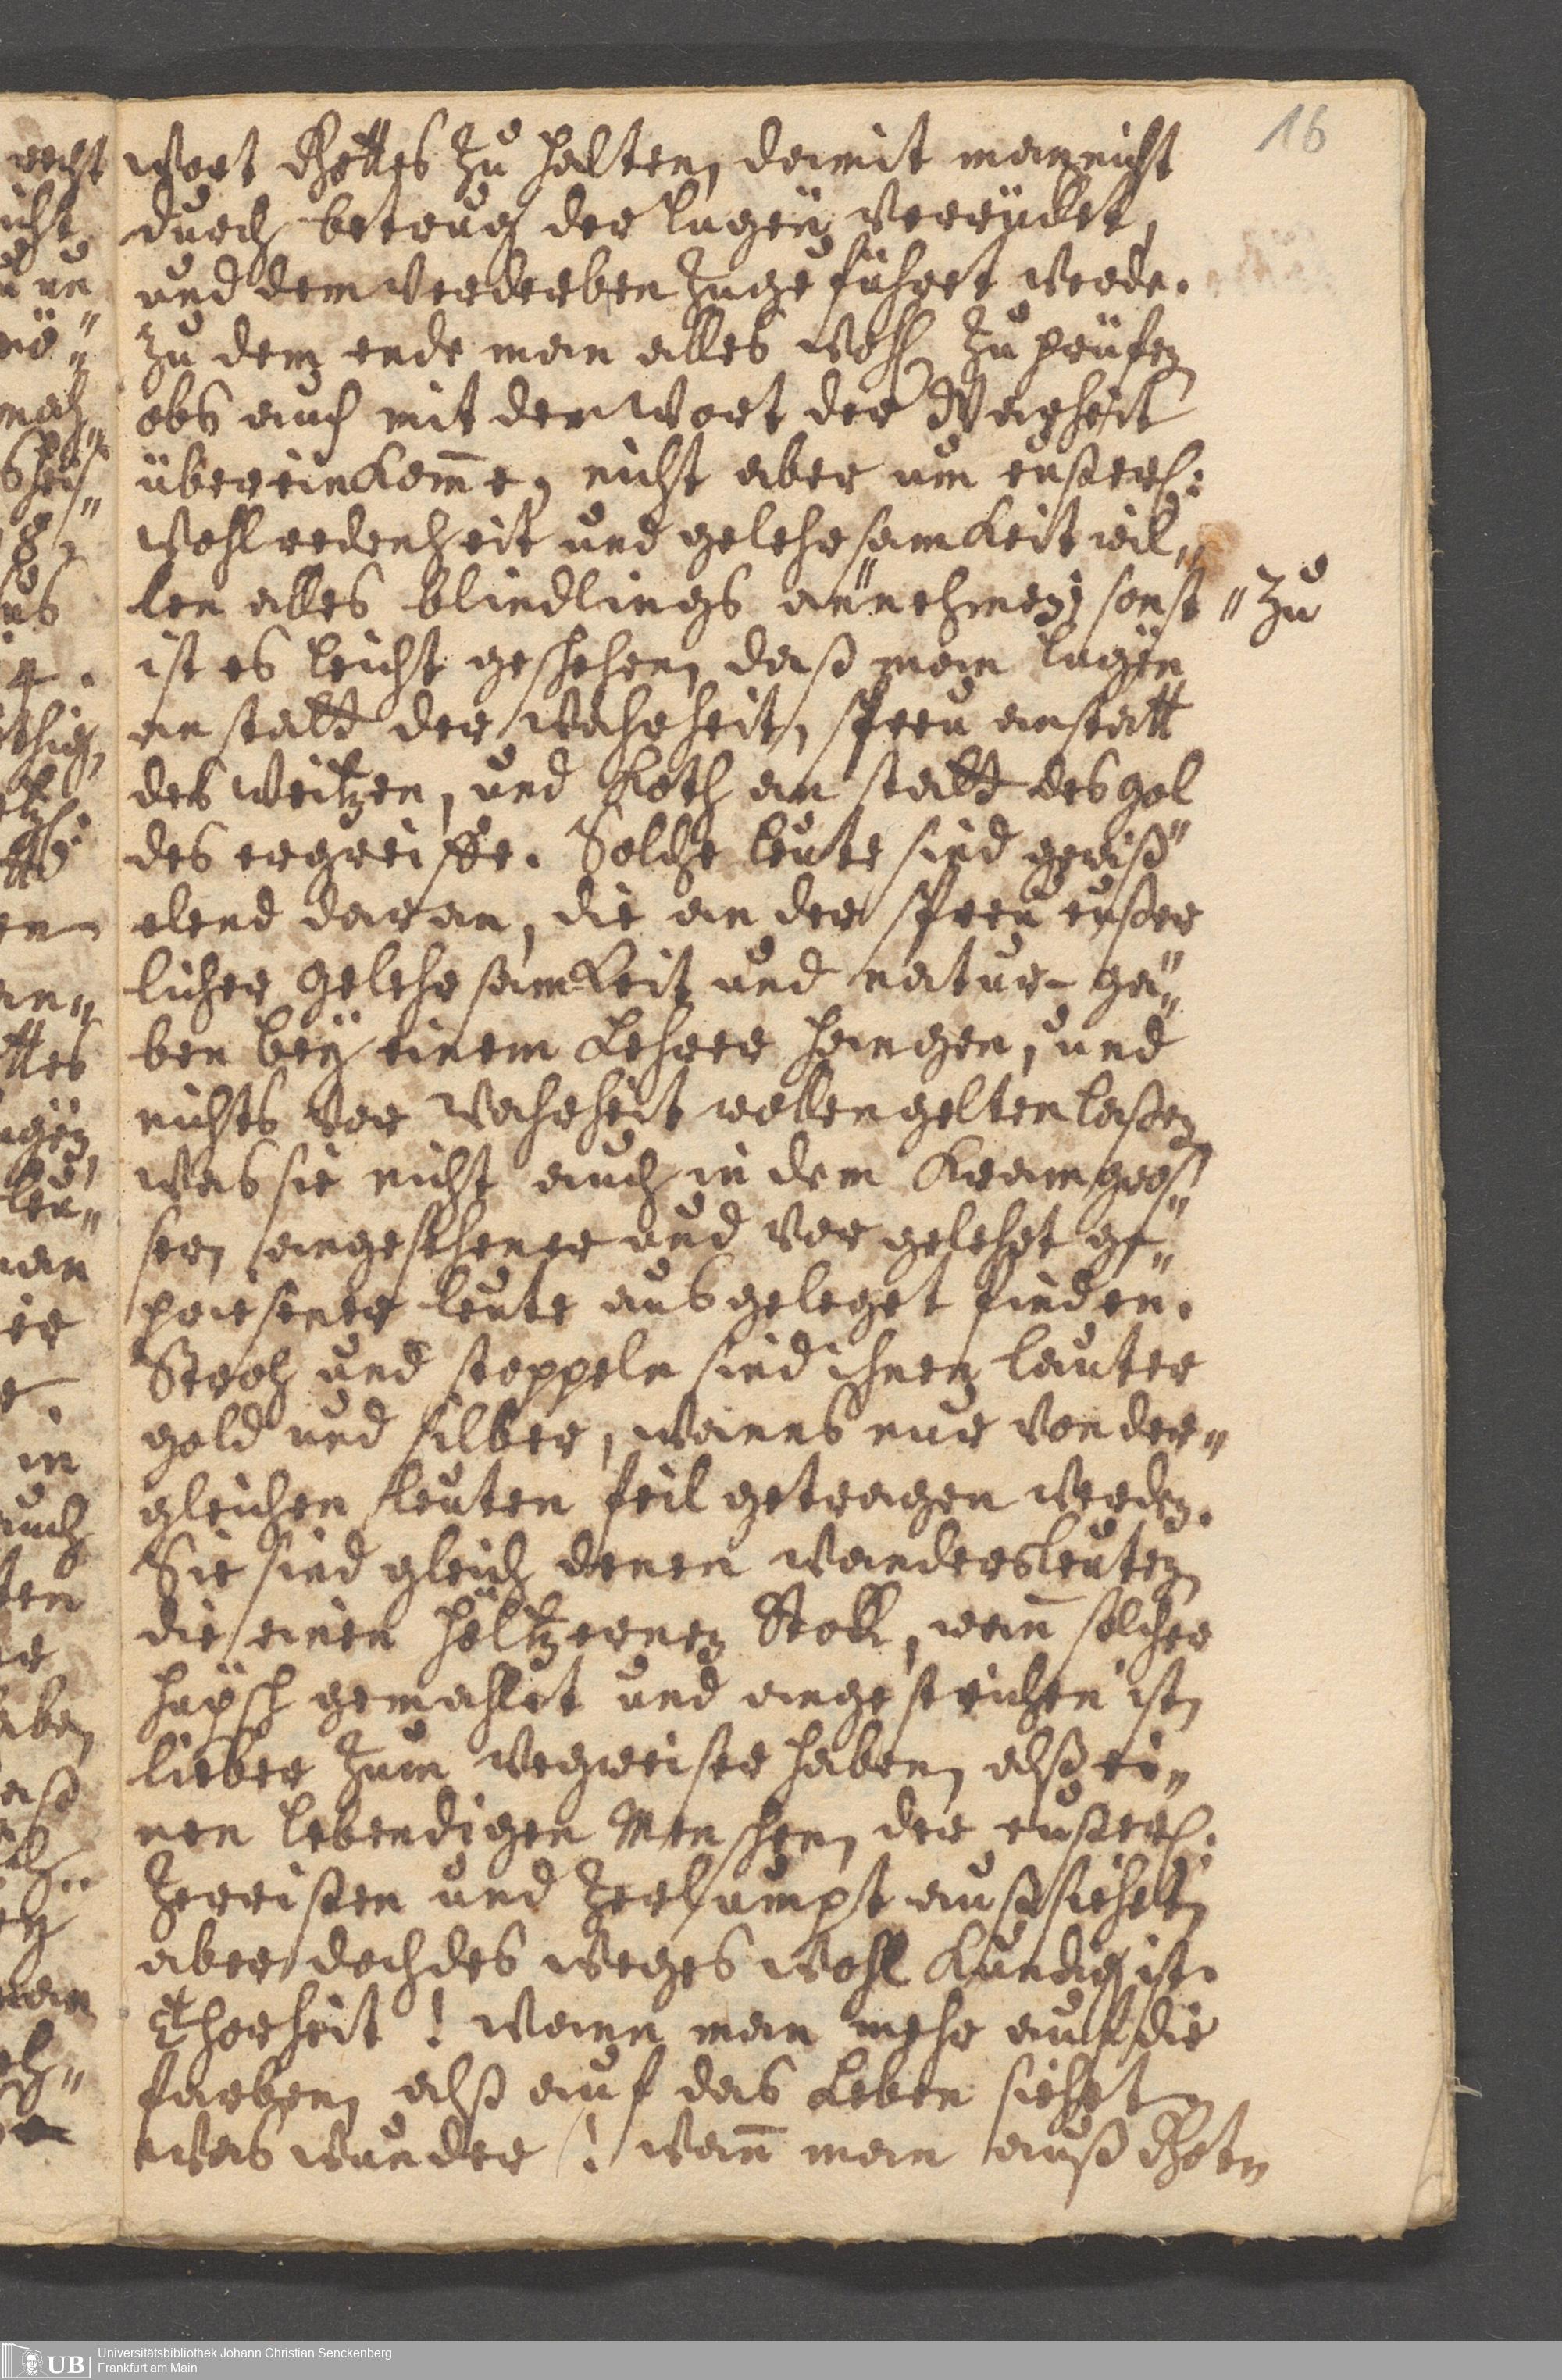 16
wort Gottes zu halten, damit man nicht
durch betrug der lugen verrücket,
und dem verderben zugeführet werde.
zu dem ende man alles wohl zu prüfen
obs auch mit dem wort der Warheit
übereinkom̅e, nicht aber um eußerl:
wohlredenheit und gelehrsamkeit wil„
len alles blindlings an"nehmen, sonst "zu
ist es leicht geschehen, daß man lügen
anstatt der wahrheit, spreu anstatt
des weitzen, und Koth anstatt des gol
des ergreiffe. Solche leute sind gewiß
elend daran, die an der spreu eußer
licher gelehrsamkeit und natur-ga„
ben bey einem Lehrer hangen, und
nichts vor wahrheit wollen gelten laßen
was sie nicht auch in dem Kram gros„
ser, angesehener und vor gelehrt ge„
priesener leute ausgeleget finden.
Stroh und stoppeln sind ihnen lauter
gold und silber, wanns nur von der„
gleichen leuten feil getragen werden.
Sie sind gleich denen wandersleuten
die einen höltzernen Stock, wan̅ solcher
hüpsch gemahlet und angestrichen ist,
lieber zum wegweiser haben, alß ei„
nen lebendigen Menschen, der eußerl:
zerrissen und zerlumpt aussiehet,
aber doch des weges wohl kundig ist.
Thorheit! wann man mehr auf die
farben, alß auf das Leben siehet,
was wunder! wan̅ man auß
Universitätsbibliothek Johann Christian Senckenberg
Frankfurt am Main
UB